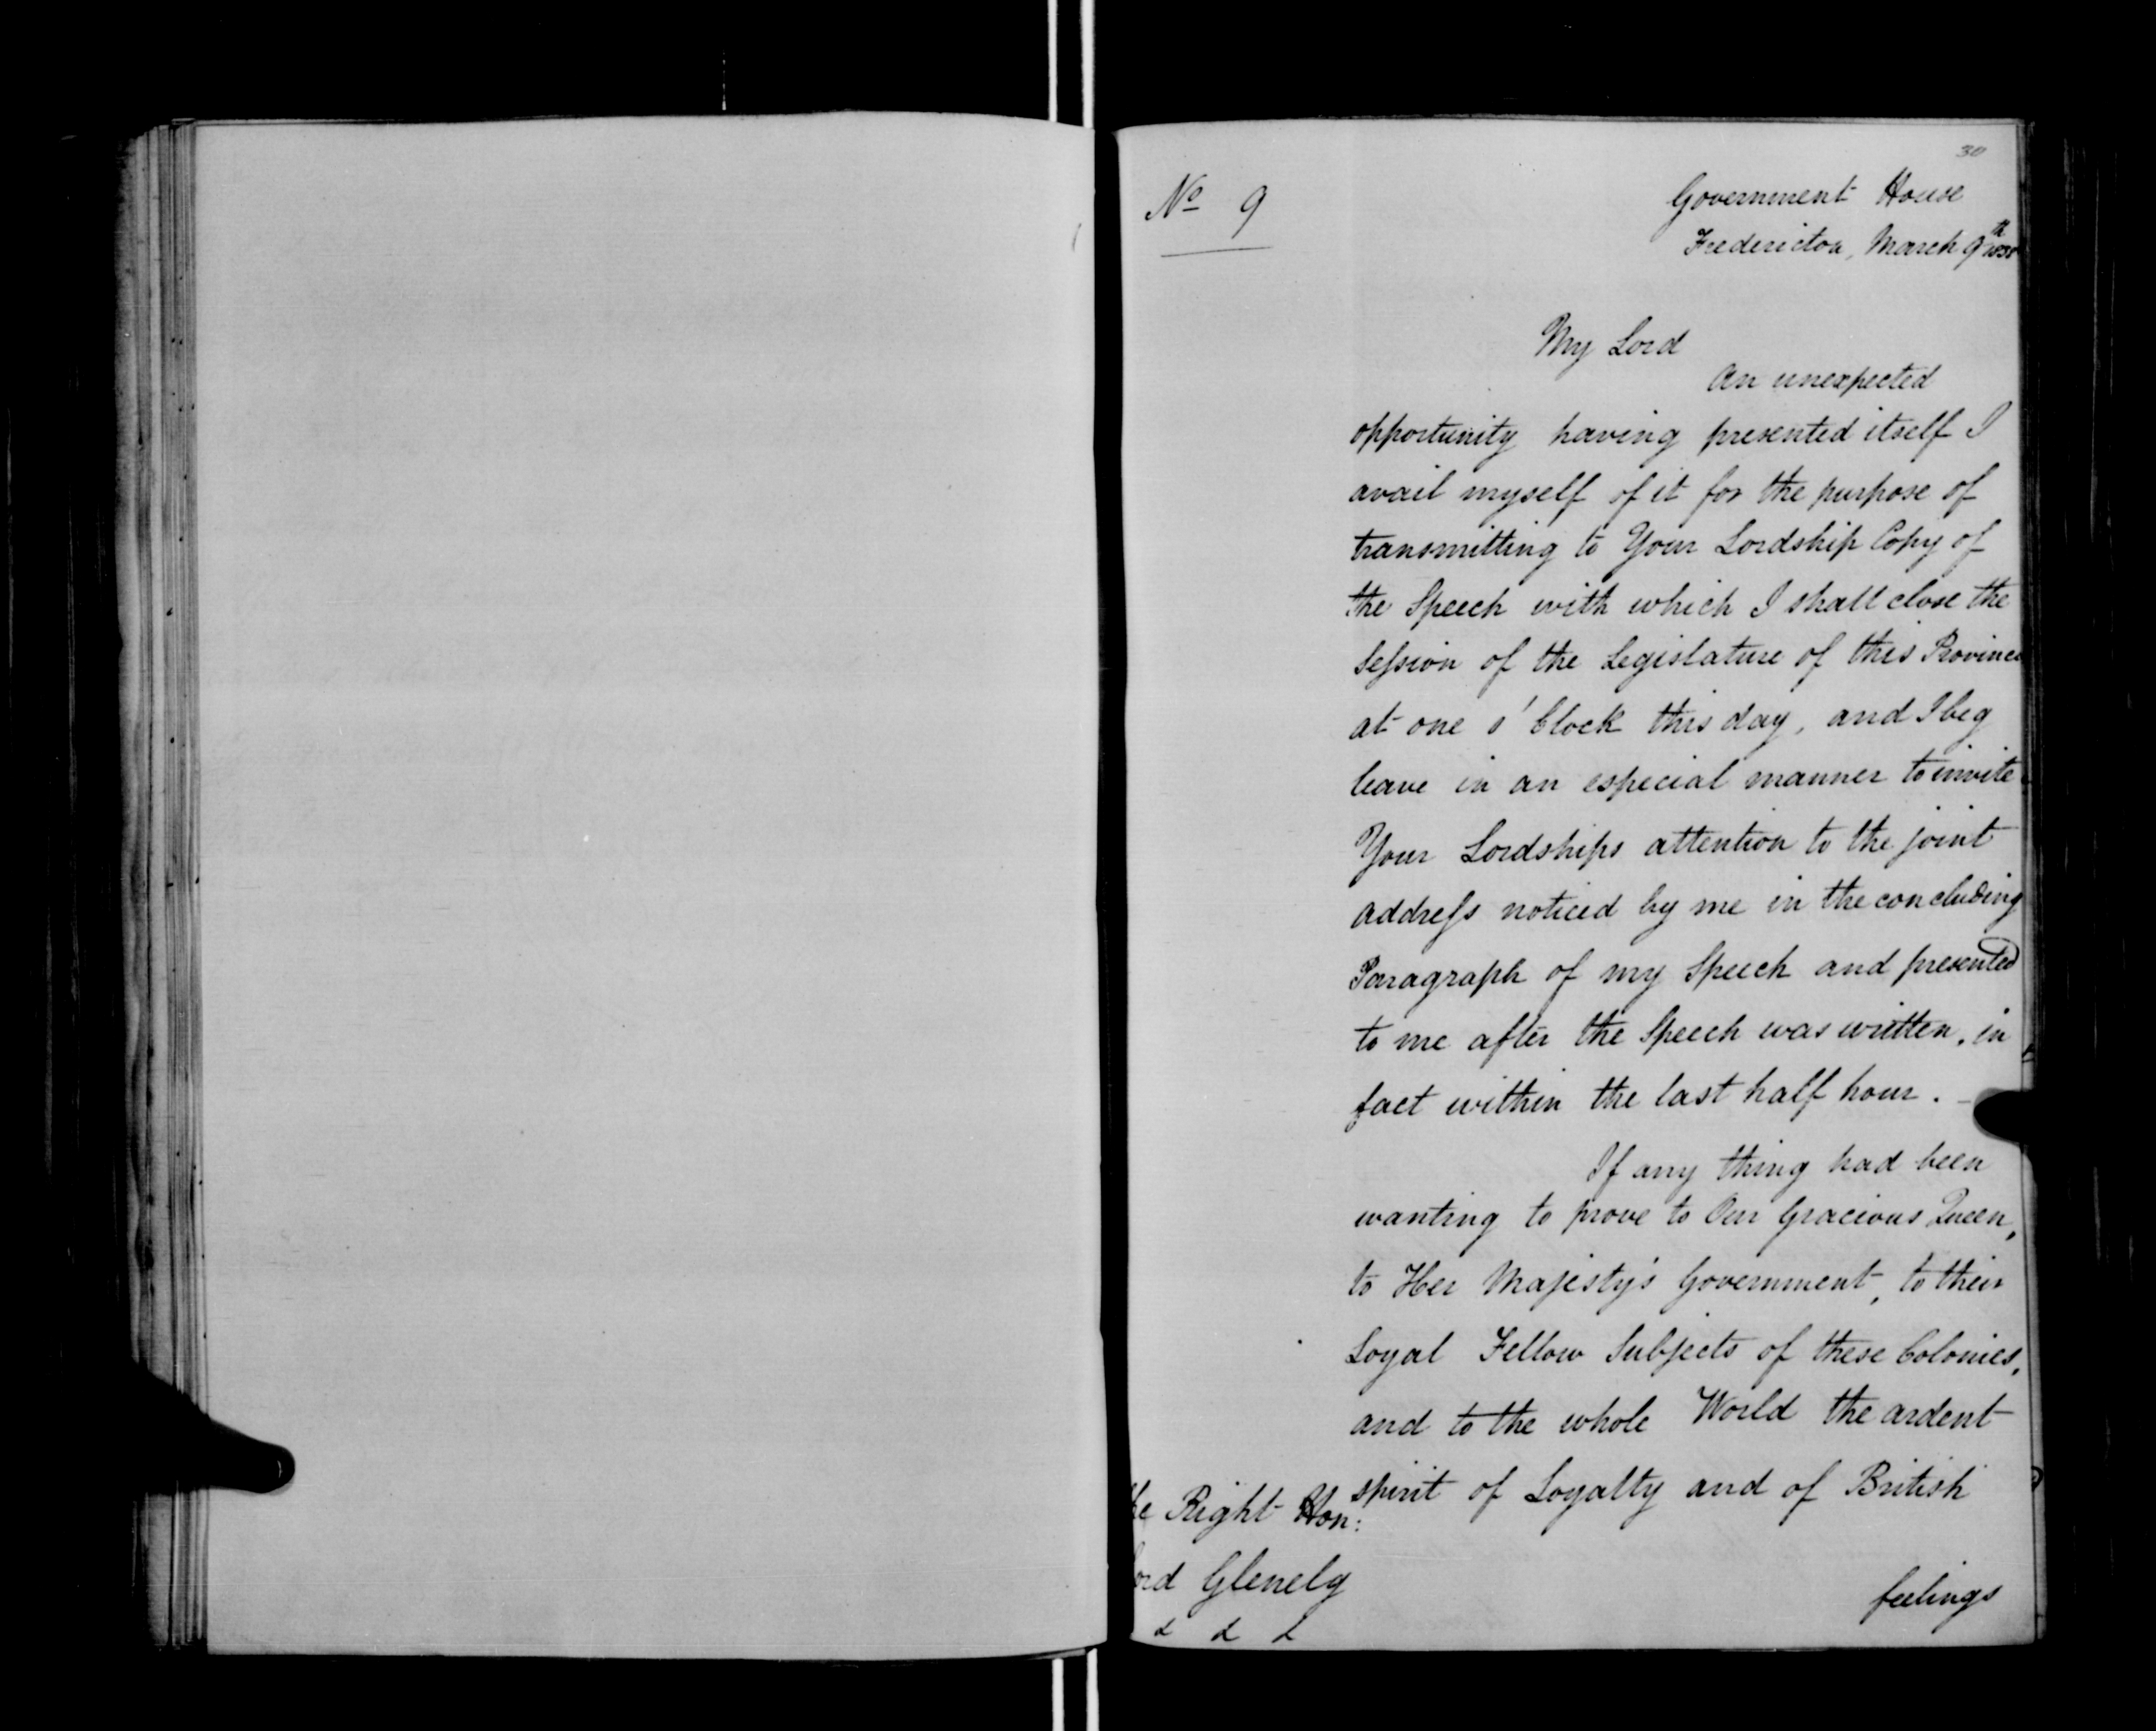 30
No 9
Government House
Fredericton, March 9th 1838
My Lord
An unexpected
opportunity having presented itself I
avail myself of it for the purpose of
transmitting to Your Lordship Copy of
the Speech with which I shall close the
Session of the Legislature of this Province
at one o'Clock this day, and I beg
leave in an especial manner to invite
Your Lordships attention to the joint
address noticed by me in the concluding
Paragraph of my Speech and presented
to me after the Speech was written, in
fact within the last half hour. -
If any thing had been
wanting to prove to Our Gracious Queen,
to Her Majesty's Government, to their
Loyal Fellow Subjects of these Colonies,
and to the whole World the ardent
spirit of Loyalty and of British
he Right Hon:
ord Glenelg
& & &
feelings